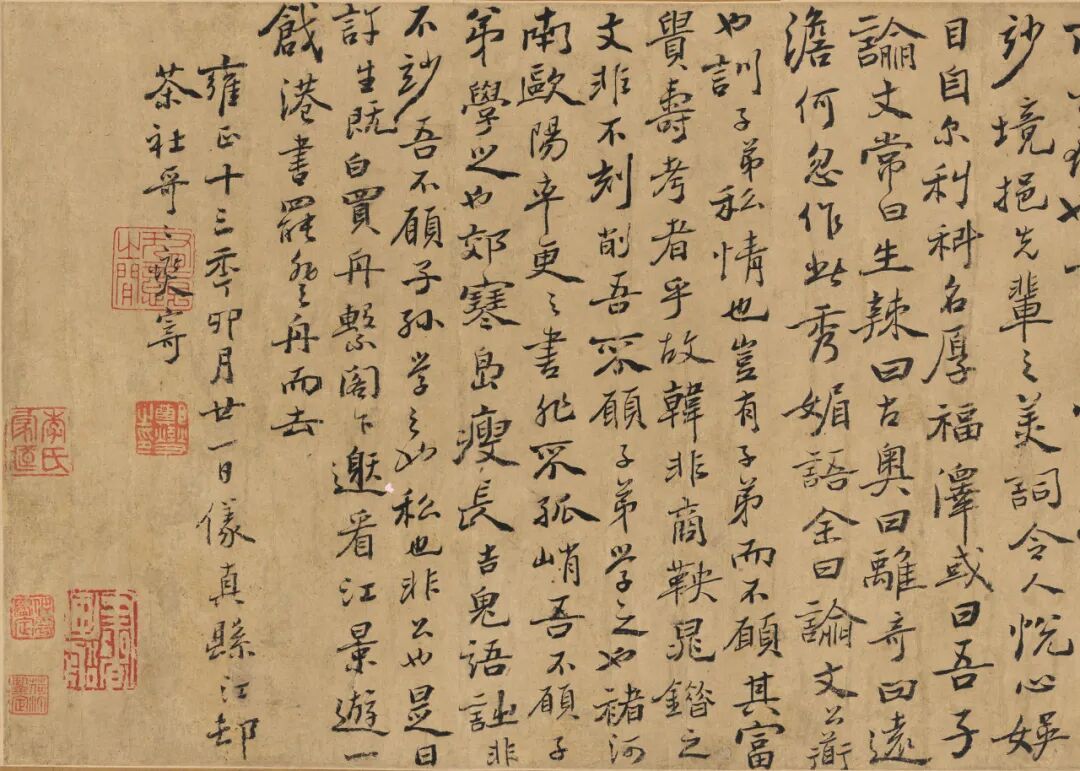 妙境挹先輩之美詞令人悅心娛
目自尔利科名厚福澤或曰吾子
論文常曰生辣曰古奧曰離奇曰遠
澹何忽作此秀媚語余曰論文公衡
也訓子弟私情也豈有子弟而不願其富
貴壽考者乎故韓非商鞅晁錯之
文非不刻削吾不願子弟学之也褚河
南歐陽率更之書非不孤峭吾不願子
弟學之也郊寒島瘦長吉鬼語詎非
不妙吾不願子孫学之也私也非公也是日
許生既白買舟繫閣下邀看江景遊一
戧港書罷登舟而去
雍正十三年卯月廿一日儀真縣江邨
茶社哥〻燮寄
李氏